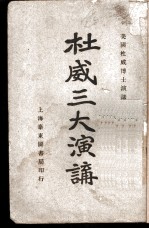 美國杜威博士演講
杜威三大演講
上海泰東圖書局印行